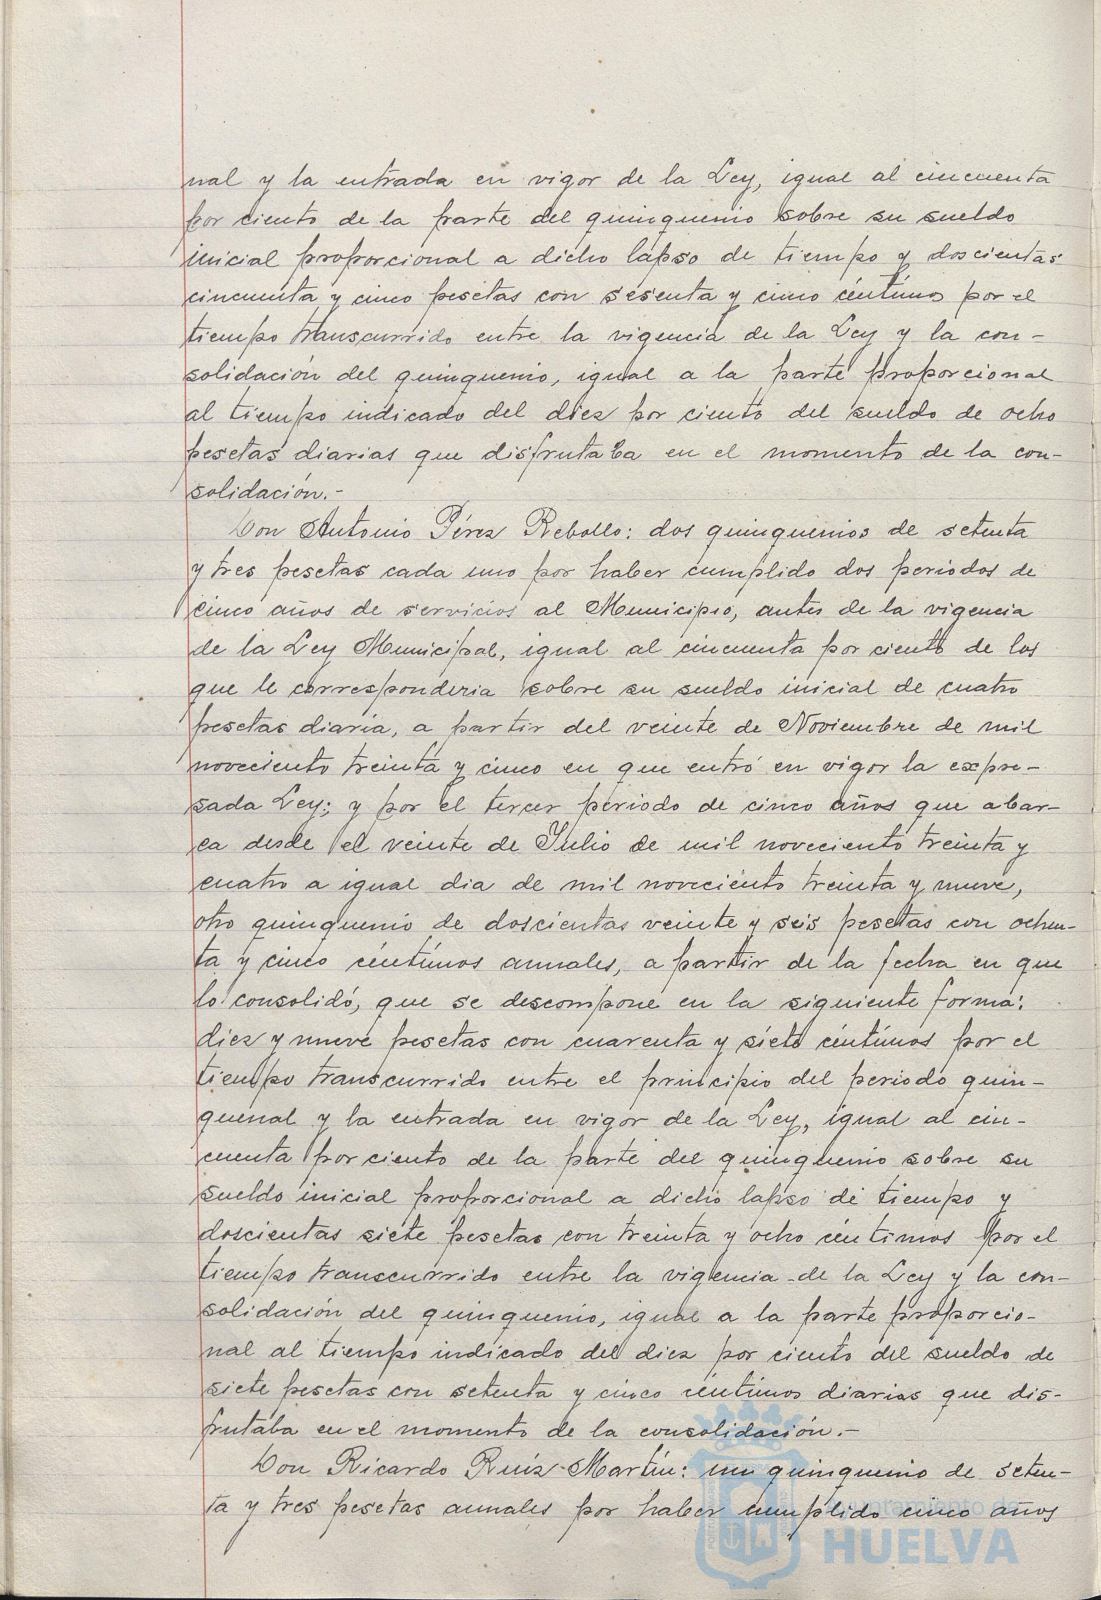 nal y la entrada en vigor de la Ley, igual al cincuenta
por ciento de la parte del quinquenio sobre su sueldo
inicial proporcional a dicho lapso de tiempo y doscientas
cincuenta y cinco pesetas con sesenta y cinco céntimos por el
tiempo transcurrido entre la vigencia de la Ley y la con-
solidación del quinquenio, igual a la parte proporcional
al tiempo indicado del diez por ciento del sueldo de ocho
pesetas diarias que disfrutaba en el momento de la con-
solidación.-
Don Antonio Pérez Rebollo: dos quinquenios de setenta
y tres pesetas cada uno por haber cumplido dos periodos de
cinco años de servicios al Municipio, antes de la vigencia
de la Ley Municipal, igual al cincuenta por ciento de los
que le corresponderia sobre su sueldo inicial de cuatro
pesetas diaria, a partir del veinte de Noviembre de mil
noveciento treinta y cinco en que entró en vigor la expre-
sada Ley; y por el tercer periodo de cinco años que abar-
ca desde el veinte de Julio de mil noveciento treinta y
cuatro a igual dia de mil noveciento treinta y nueve,
otro quinquenio de doscientas veinte y seis pesetas con ochen-
ta y cinco céntimos annales, a partir de la fecha en que
lo consolidó, que se descompone en la siguiente forma:
diez y nueve pesetas con cuarenta y siete céntimos por el
tiempo transcurrido entre el principio del periodo quin-
quenal y la entrada en vigor de la Ley, igual al cin-
cuenta por ciento de la parte del quinquenio sobre su
sueldo inicial proporcional a dicho lapso de tiempo y
doscientas siete pesetas con treinta y ocho céntimos por el
tiempo transcurrido entre la vigencia de la Ley y la con-
solidación del quinquenio, igual a la parte proporcio-
nal al tiempo indicado del diez por ciento del sueldo de
siete pesetas con setenta y cinco céntimos diarias que dis-
frutaba en el momento de la consolidación.-
Don Ricardo Ruiz Martín: un quinquenio de seten-
ta y tres pesetas annales por haber cumplido cinco años
Ayuntamiento de
HUELVA